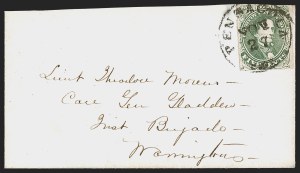 PENSACOLA
24
Lieut Theodore Moreno
Care Gen Gladden
First Brigade
Warrington